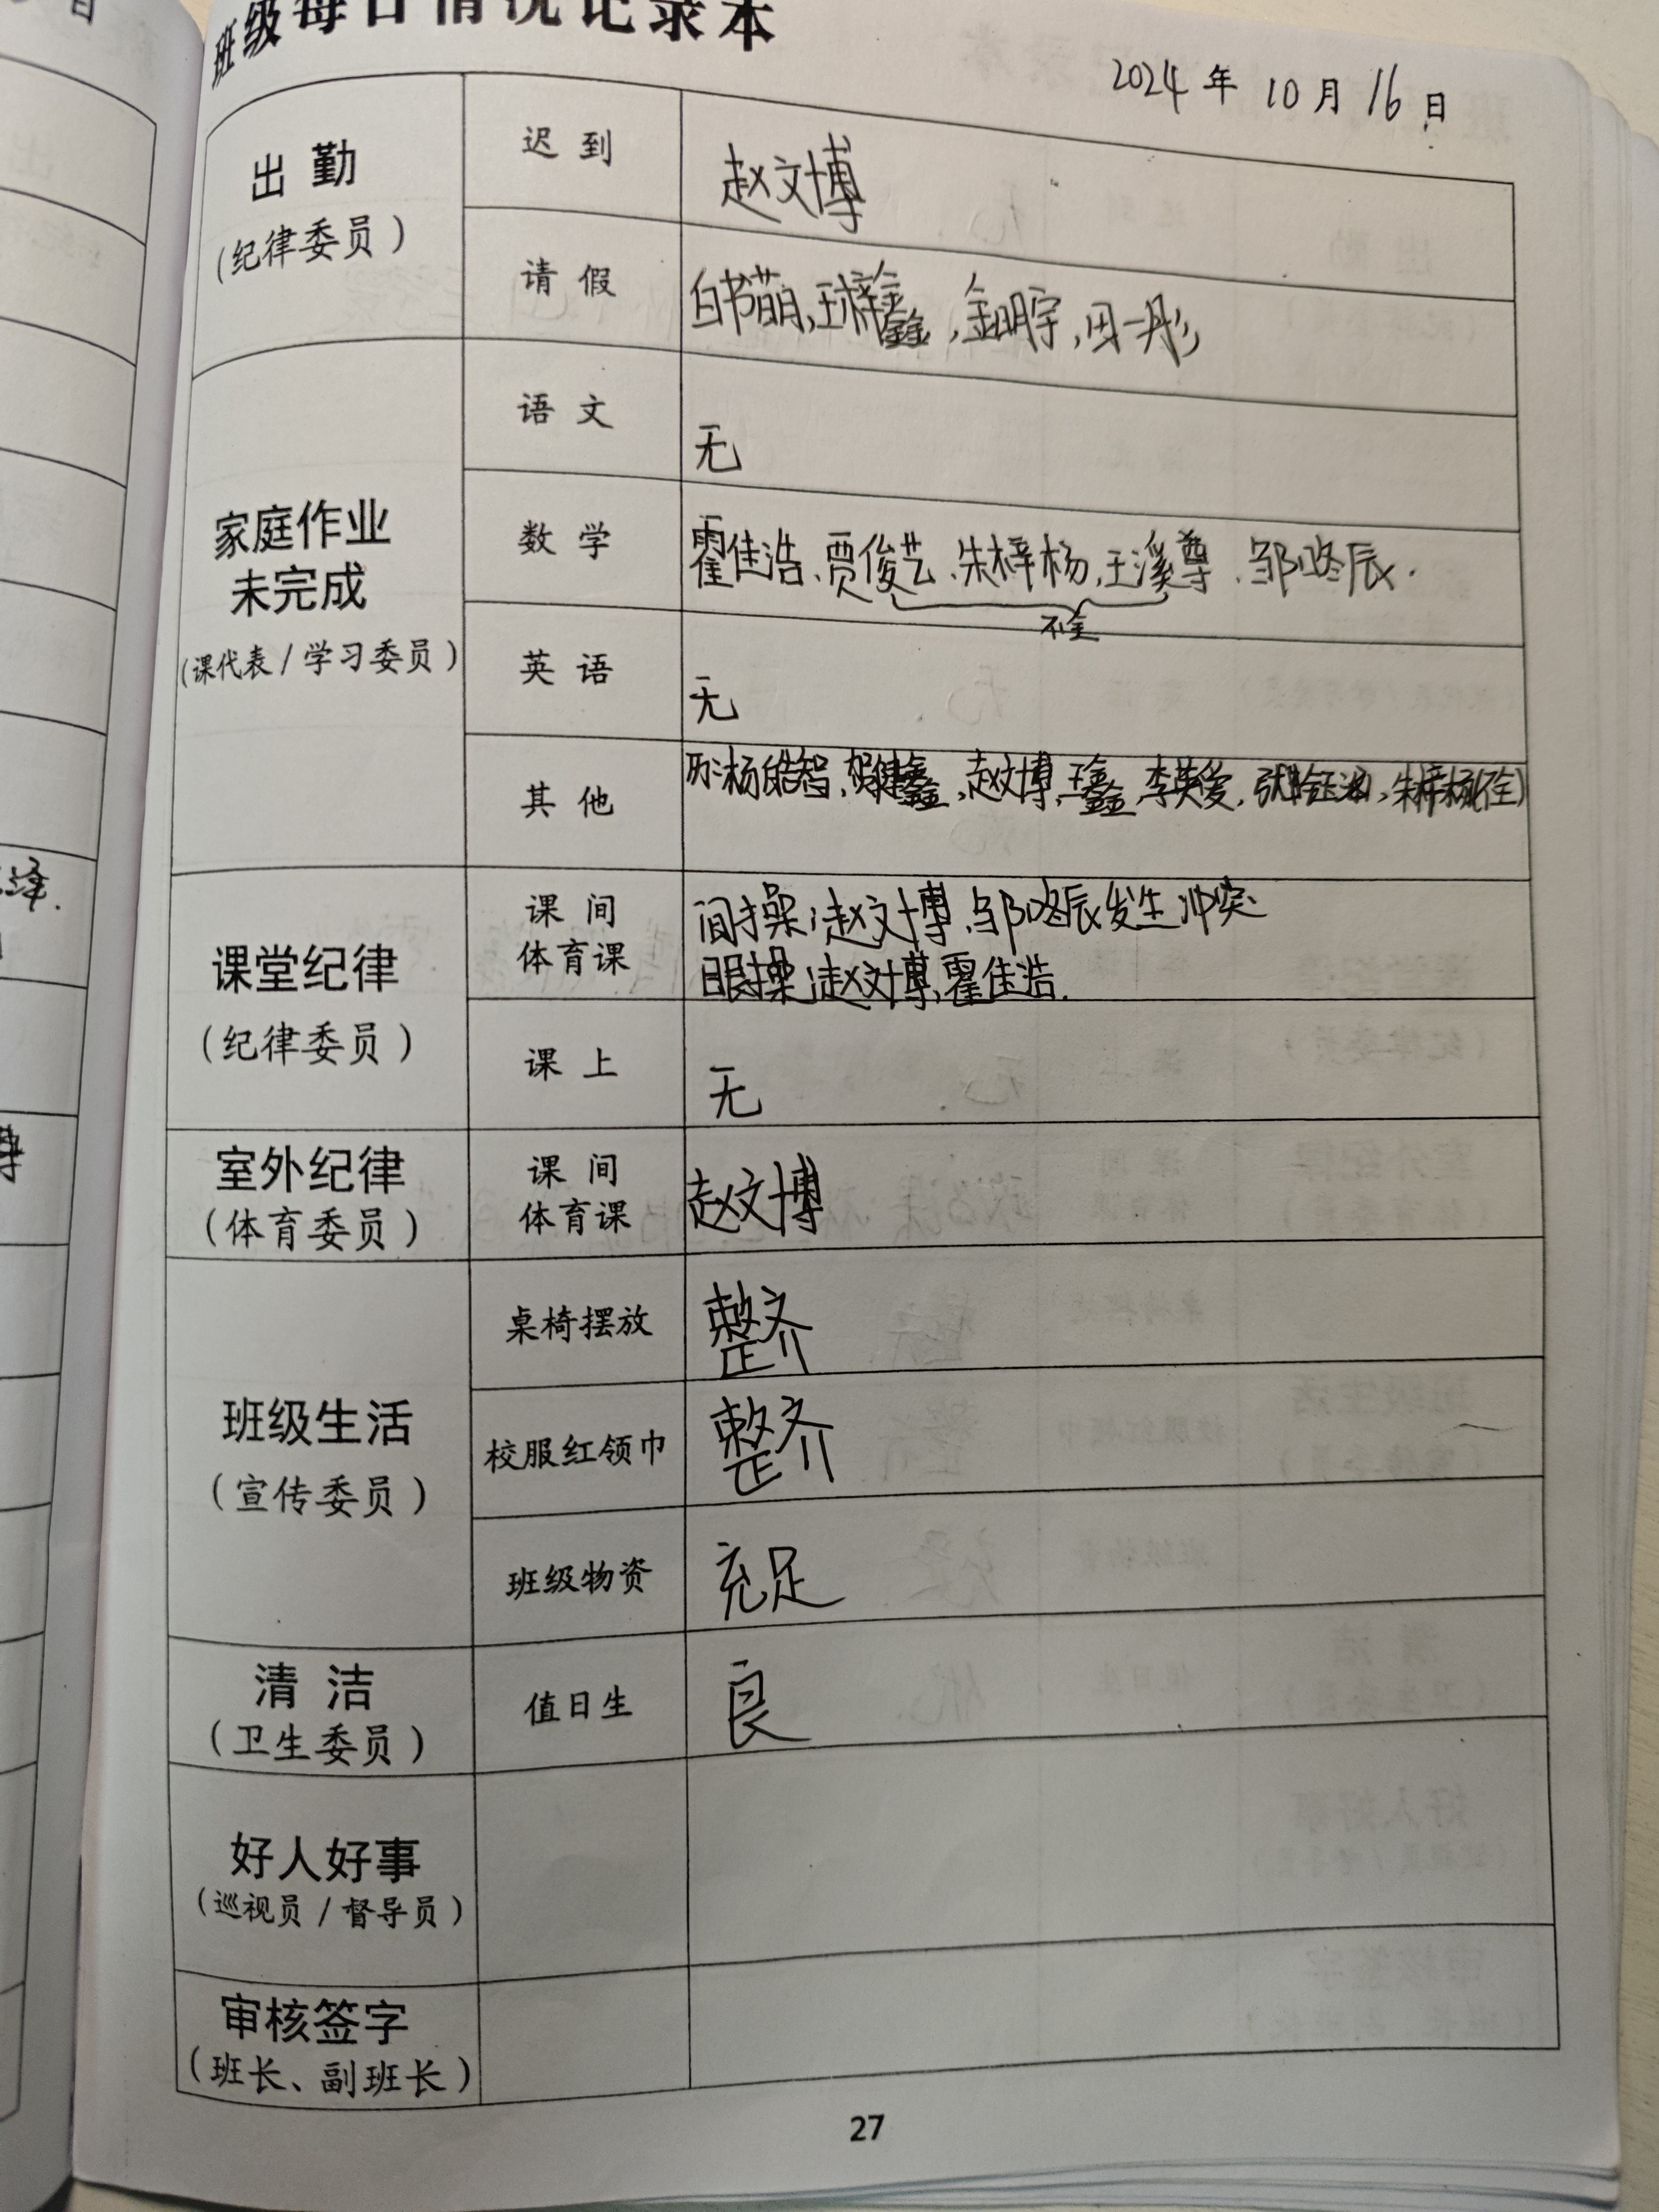 班级每日情况记录本
2024 年 10 月 16 日
出 勤
(纪律委员)
迟 到
赵文博
请 假
白书萌,王梓鑫,金明宇,田一彤
家庭作业
未完成
(课代表/学习委员)
语 文
无
数 学
霍佳浩、贾俊艺、朱梓杨,王溪尊、邹咯辰.
不全
英 语
无
其 他
杨皓智,贺健鑫,赵文博,王鑫,李英爱,朱梓杨(不全)
课堂纪律
(纪律委员)
课 间
体育课
间操:赵文博、邹咯辰发生冲突
眼操:赵文博,霍佳浩.
课 上
无
室外纪律
(体育委员)
课 间
体育课
赵文博
班级生活
(宣传委员)
桌椅摆放
整齐
校服红领巾
整齐
班级物资
充足
清 洁
(卫生委员)
值日生
良
好人好事
(巡视员/督导员)
审核签字
(班长、副班长)
27